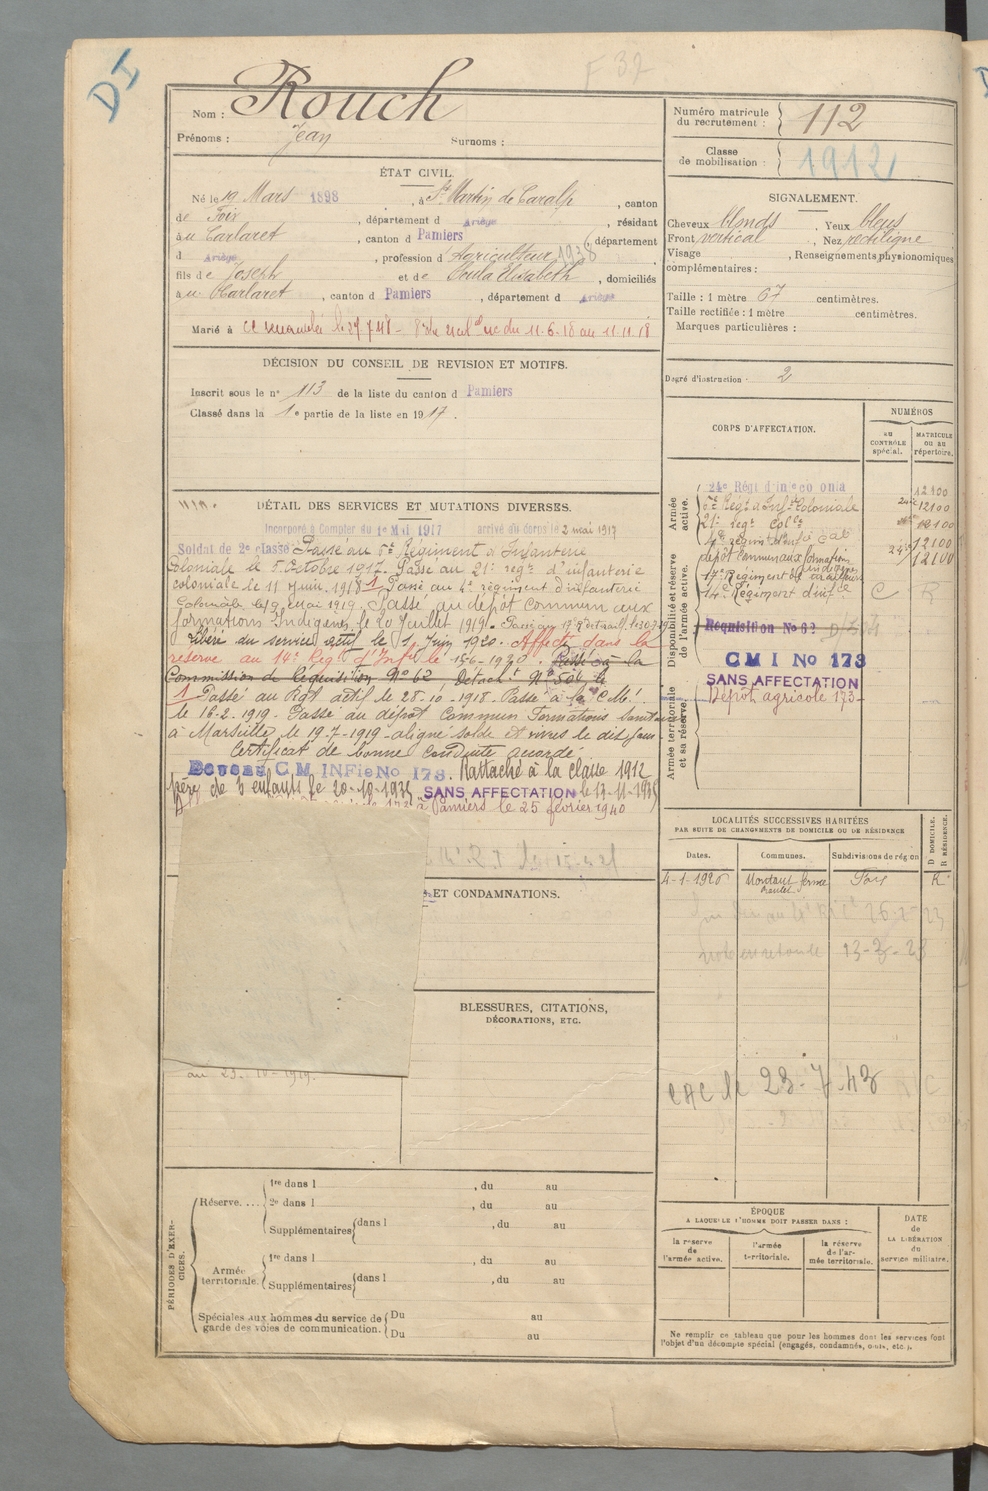 DI
F 32
Nom : Rouch
Prénoms : Jean Surnoms :
Numéro matricule du recrutement : 112
Classe de mobilisation : 1912
ÉTAT CIVIL.
Né le 19 Mars 1898, à St Martin de Caralp, canton
de Foix, département d Ariège, résidant
à u Carlaret, canton d Pamiers, département
d Ariège, profession d' Agriculteur 1938
fils de Joseph et de Soula Elisabeth, domiciliés
à u Carlaret, canton d Pamiers, département d Ariège
Marié à
du 11-6-18 au 11.11.18
SIGNALEMENT.
Cheveux blonds, Yeux bleus
Front vertical, Nez rectiligne
Visage , Renseignements physionomiques
complémentaires :
Taille : 1 mètre 67 centimètres.
Taille rectifiée : 1 mètre centimètres.
Marques particulières :
Degré d'instruction : 2
DÉCISION DU CONSEIL DE REVISION ET MOTIFS.
Inscrit sous le n° 113 de la liste du canton d Pamiers
Classé dans la 1e partie de la liste en 1917.
CORPS D'AFFECTATION.
NUMÉROS
AU CONTRÔLE spécial.
MATRICULE ou au répertoire.
Armée active.
24e Régt d'Inf co onia 12100
5e Régt d'Infie Coloniale 12100
21e regt Colle 12100
4e regiment d'inf Col 12100
dépôt commun aux formations indigènes 12100
17e Régiment de
14e Régiment d'infie C R
Disponibilité et réserve de l'armée active.
Requisition No 62
CMI No 173
SANS AFFECTATION
Dépôt agricole 173
Armée territoriale et sa réserve.
DÉTAIL DES SERVICES ET MUTATIONS DIVERSES.
Incorporé à Compter du 1e Mai 1917 arrivé du corps le 2 mai 1917
Soldat de 2e classe Passé au 5e Régiment d'Infanterie
Coloniale le 5 Octobre 1917. Passé au 21e regt d'infanterie
coloniale le 11 juin 1918 1 Passé au 4e régiment d'infanterie
Coloniale le 9 mai 1919. Passé au dépôt commun aux
formations Indigènes le 20 Juillet 1919.
Libéré du service actif le 1 Juin 1920. Affecté dans la
réserve au 14e Regt d'Infie le 15-6-1920. Passé à la
Commission de Requisition No 62 Détacht No 506 le
1 Passé au Rgt actif le 28-10-1918. Passé à la C Mé
le 16-2-1919. Passé au dépôt Commun Formations
à Marseille le 19-7-1919 - aligné solde et vivres le dit jour
Certificat de bonne Conduite accordé
CM INFie No 173. Rattaché à la classe 1912
père de 3 enfants le 20-10-1935 SANS AFFECTATION le 13-11-1935
à Pamiers le 25 février 1940
ET CONDAMNATIONS.
BLESSURES, CITATIONS,
DÉCORATIONS, ETC.
au 23-10-1919.
LOCALITÉS SUCCESSIVES HABITÉES
PAR SUITE DE CHANGEMENTS DE DOMICILE OU DE RÉSIDENCE
Dates.
Communes.
Subdivisions de région
D DOMICILE.
R RÉSIDENCE.
4-1-1926 Foix R
13-3-23
CAC le 23-7-43
PÉRIODES D'EXERCICES.
Réserve....
1re dans l , du au
2e dans l , du au
Supplémentaires dans l , du au
Armée territoriale.
1re dans l , du au
Supplémentaires dans l , du au
Spéciales aux hommes du service de garde des voies de communication.
Du au
Du au
ÉPOQUE
A LAQUELLE L'HOMME DOIT PASSER DANS :
la réserve de l'armée active.
l'armée territoriale.
la réserve de l'armée territoriale.
DATE de LA LIBÉRATION du service militaire.
Ne remplir ce tableau que pour les hommes dont les services font
l'objet d'un décompte spécial (engagés, condamnés, omis, etc.).